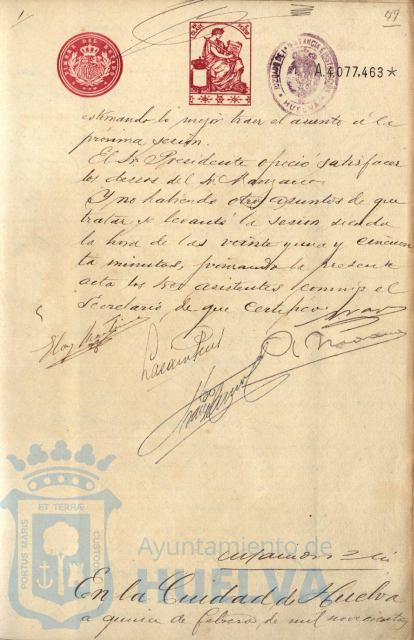 49
TIMBRE DEL ESTADO
A.4.077.463*
HUELVA
estimando lo mejor traer el asunto á la
próxima sesión.
El Sr. Presidente ofreció satisfacer
los deseos del Sr.
Y no habiendo otros asuntos de que
tratar se levantó la sesión siendo
la hora de las veinte y una y cincuen
ta minutos, firmando la presente
acta los Sres asistentes conmigo el
Secretario de que certifico
PORTUS MARIS
ET TERRÆ
CUSTODIA
Ayuntamiento de
HUELVA
En la Ciudad de Huelva
a quince de febrero de mil novecientos